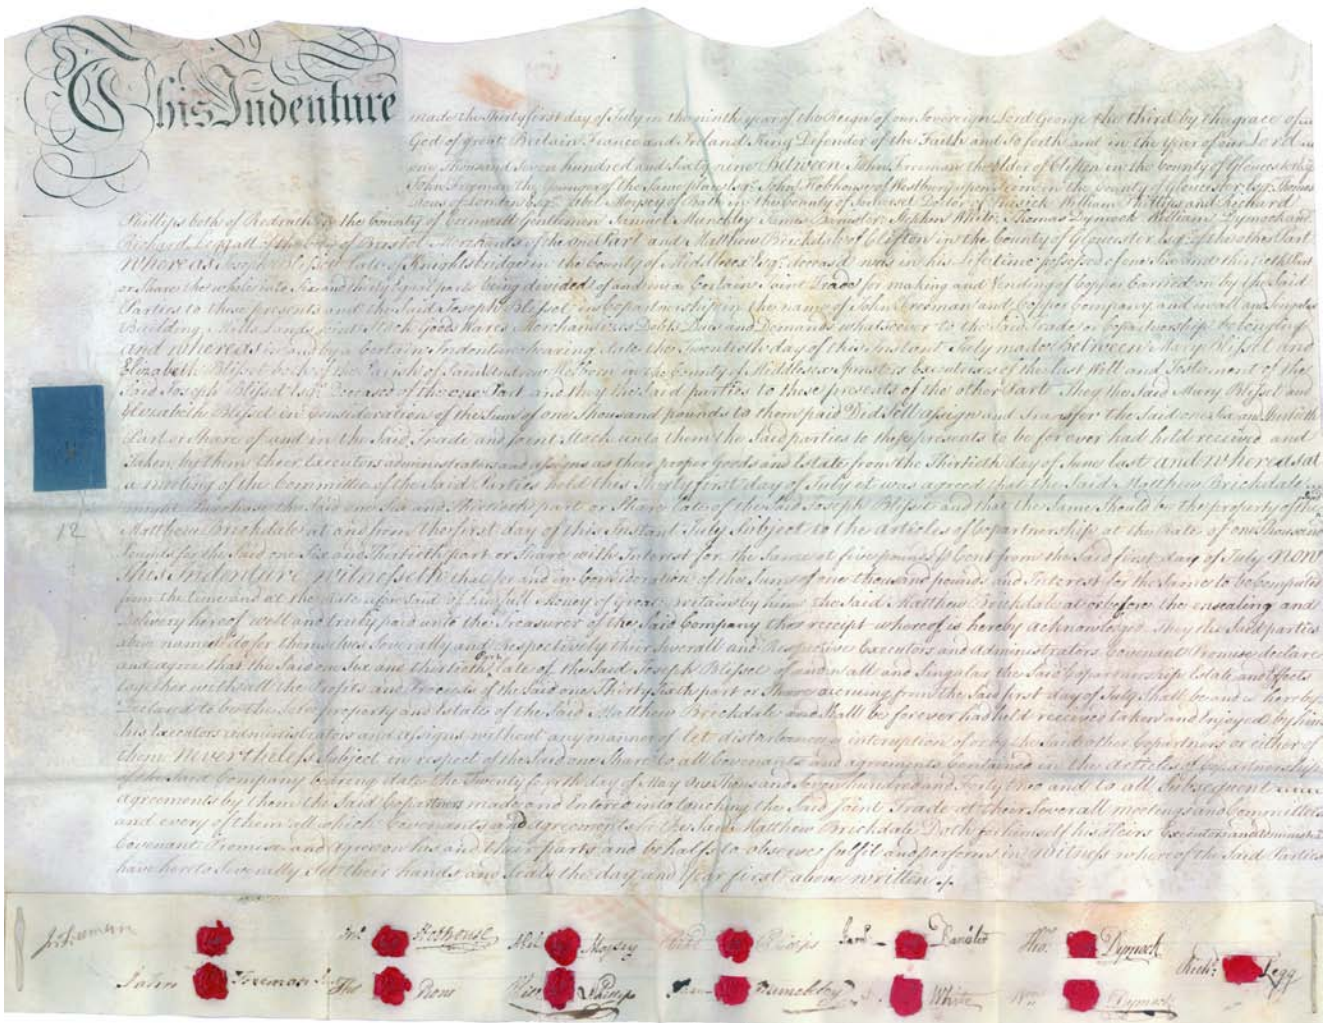 This Indenture made the Thirty first day of July in the ninth year of the Reign of our Sovereign Lord George the third by the grace of
God of great Britain France and Ireland King Defender of the Faith and so forth and in the year of our Lord
one thousand seven hundred and sixty nine Between John Freeman the Elder of Clifton in the County of Gloucester Esqr.
John Freeman the Younger of the Same place Esqr. John Hobhouse of Westbury upon in the County of Gloucester Esqr. Thomas
of London Esqr. Abel Moysey of Bath in the County of Somerset Doctor of Physick William Phillips and Richard
Phillips both of Redruth in the County of Cornwall Gentlemen Samuel Munckley James Bannister Stephen White Thomas Dymock William Dymock and
Richard Legg all of the City of Bristol Merchants of the one Part and Matthew Brickdale of Clifton in the County of Gloucester Esqr. of the other Part
Whereas Joseph Blisset late of Knightsbridge in the County of Middlesex Esqr. deceased was in his Life time possessed of one Six and thirtieth Part
or Share the whole into Six and thirty Equal parts being divided of and in a Certain Joint Trade for making and Vending of Copper Carried on by the Said
Parties to these presents and the Said Joseph Blisset in Copartnership in the name of John Freeman and Copper Company and in all and Singular
Building Mills Lands Joint Stock Goods Wares Merchandizes Debts Dues and Demands whatsoever to the Said Trade or Copartnership belonging
and whereas in and by a Certain Indenture bearing date the Twentieth day of this Instant July made Between Mary Blisset and
Elizabeth Blisset both of the Parish of Saint Andrew Holborn in the County of Middlesex Spinsters Executrixes of the last Will and Testament of the
Said Joseph Blisset Esqr. Deceased of the one Part and they the Said parties to these presents of the other Part They the Said Mary Blisset and
Elizabeth Blisset in Consideration of the Sum of one Thousand pounds to them paid Did Sell assign and Transfer the Said one Six and Thirtieth
Part or Share of and in the Said Trade and Joint Stock unto them the Said parties to these presents to be for ever had held received and
Taken by them their Executors administrators and assigns as their proper Goods and Estate from the Thirtieth day of June last and whereas at
a meeting of the Committee of the Said Parties held this Thirty first day of July it was agreed that the Said Matthew Brickdale
might Purchase the Said one Six and Thirtieth part or Share late of the Said Joseph Blisset and that the Same Should be the property of the said
Matthew Brickdale at and from the first day of this Instant July Subject to the articles of Copartnership at the Rate of one Thousand
Pounds for the Said one Six and Thirtieth part or Share with Interest for the Same at five pounds Cent from the Said first day of July Now
This Indenture witnesseth that for and in Consideration of the Sum of one thousand pounds and Interest for the Same to be Computed
from the time and at the Rate aforesaid of lawfull Money of Great Britain by him the Said Matthew Brickdale at or before the ensealing and
Delivery hereof well and truly paid unto the Treasurer of the Said Company the receipt whereof is hereby acknowledged They the Said parties
above named do for themselves Severally and Respectively their Severall and Respective Executors and Administrators Covenant Promise declare
and agree that the Said one Six and thirtieth Part late of the Said Joseph Blisset of and in all and Singular the Said Copartnership Estate and Effects
together with all the Profits and Proceeds of the Said one Thirty Sixth part or Share accruing from the Said first day of July Shall be and is hereby
Declared to be the Sole property and Estate of the Said Matthew Brickdale and Shall be forever had held received taken and Enjoyed by him
his Executors administrators and assigns without any manner of let disturbance or interuption of or by the Said other Copartners or either of
them Nevertheless Subject in respect of the Said one Share to all Covenants and agreements Contained in the articles of Copartnership
of the Said Company bearing date the Twenty day of May One Thousand Seven hundred and Forty two and to all Subsequent
agreements by them the Said Copartners made and Entered into touching the Said Joint Trade at their Severall meetings and Committees
and every of them all which Covenants and agreements he the Said Matthew Brickdale Doth for himself his Heirs Executors and Administrators
Covenant Promise and agree on his and their parts and behalfs to observe fulfil and perform in Witness whereof the Said Parties
have hereto Severally Set their hands and Seals the day and year first above written
12
Jn Freeman Jno. Hobhouse Abel Moysey Richd Phillips James Banister Tho. Dymock
John Freeman Junr Tho Wm Phillips Munckley White Wm Dymock Richd. Legg